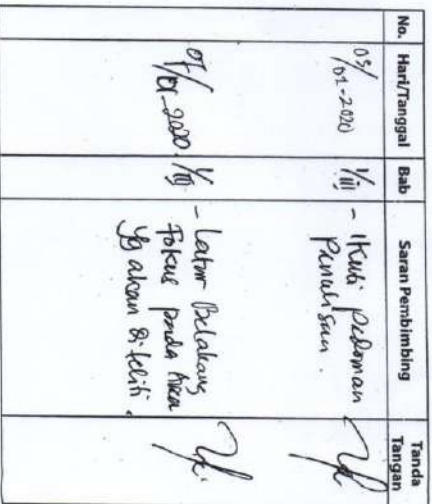 No. Hari/Tanggal Bab Saran Pembimbing Tanda Tangan
03/01-2020 I/III - Ikuti pedoman
penulisan.
07/01-2020. I/III - Latar Belakang
Fokus pada Area
yg akan diteliti.